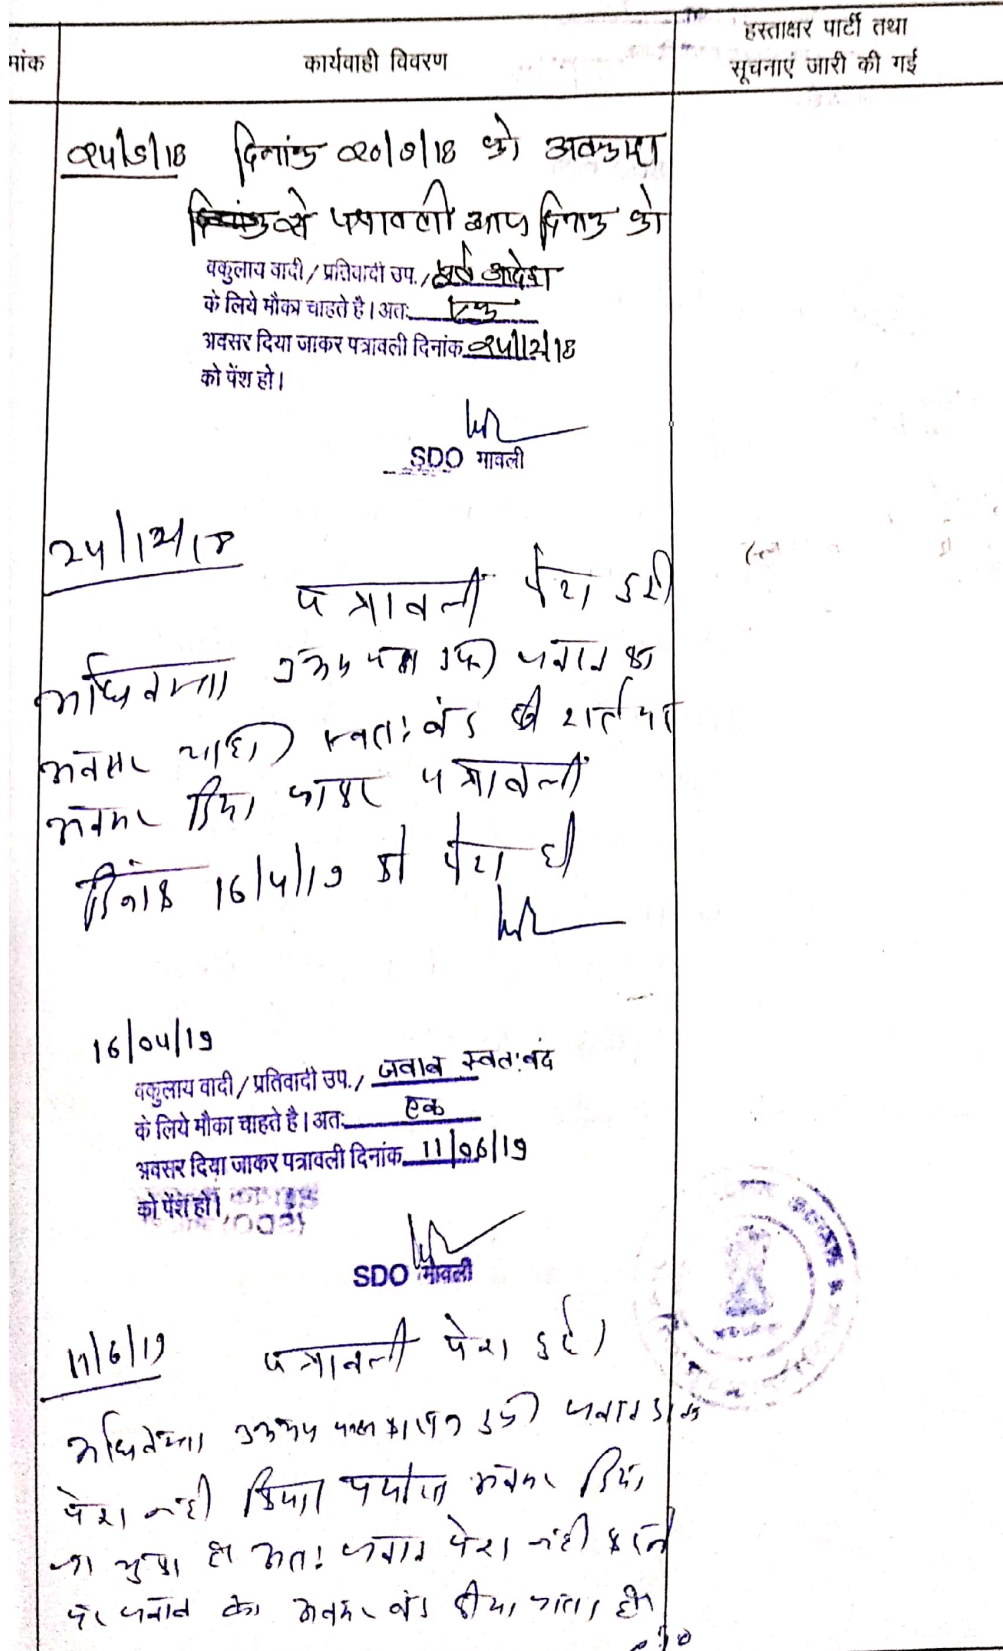 हस्ताक्षर पार्टी तथा
मांक कार्यवाही विवरण सूचनाएं जारी की गई
दिनांक को अवकाश
से पत्रावली आज दिनांक को
वकुलाय वादी / प्रतिवादी उप. / आदेश
के लिये मौका चाहते है। अतः एक
अवसर दिया जाकर पत्रावली दिनांक २५/१२/१8
को पेंश हो।
SDO मावली
२५/१२/१८
पत्रावली पेश हुई
अधिवक्ता उभय पक्ष उप. जवाब का
अवसर चाहा। स्वतः बंद की शर्त पर
अवसर दिया जाकर पत्रावली
दिनांक 16/4/19 को पेश हो
16/04/19
वकुलाय वादी / प्रतिवादी उप. / जवाब स्वतः बंद
के लिये मौका चाहते है। अतः एक
अवसर दिया जाकर पत्रावली दिनांक 11/06/19
को पेंश हो।
SDO मावली
11/6/19 पत्रावली पेश हुई।
अधिवक्ता उभय पक्ष जवाब
पेश नही किया पर्याप्त अवसर दिया
जा चुका है अतः जवाब पेश नही करने
पर जवाब का अवसर बंद कीया जाता है